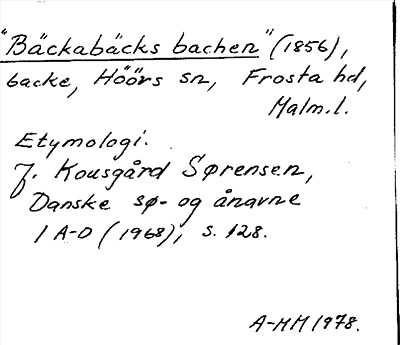 "Bäckabäcks bachen" (1856),
backe, Höörs sn, Frosta hd,
Malm.l.
Etymologi.
J. Kousgård Sørensen,
Danske sø- og ånavne
1 A-D (1968), s. 128.
A-HM 1978.